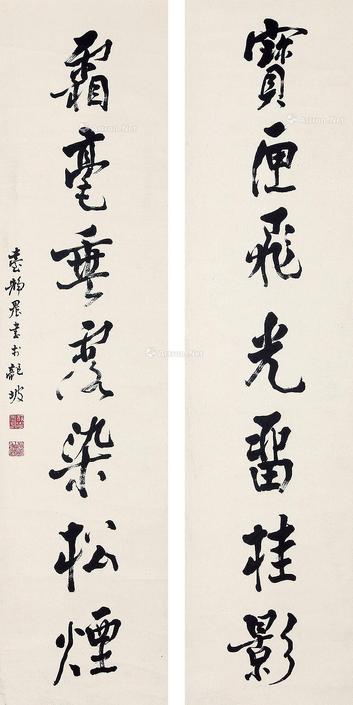 寶匣飛光留桂影
霜毫垂露染松煙
臺靜農書於龍坡